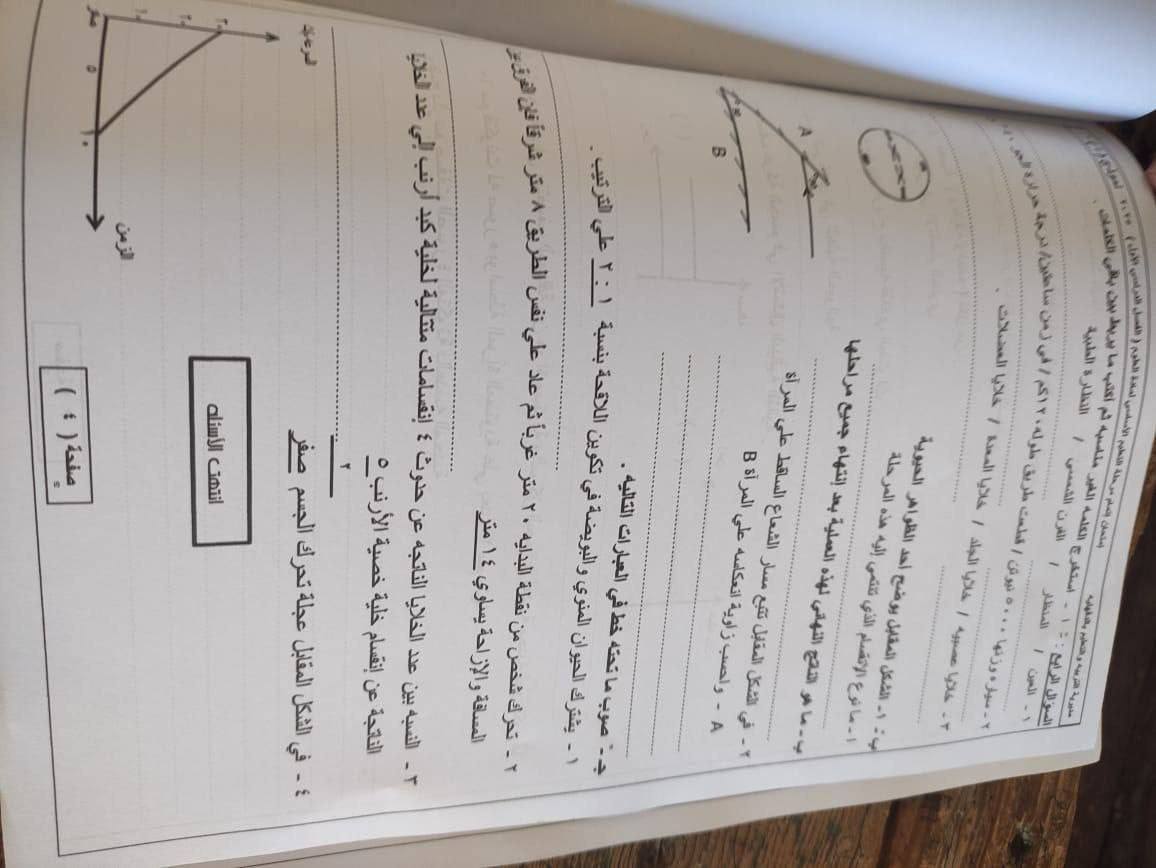 مديرية التربية والتعليم بالدقهلية
السؤال الرابع : أ - استخرج الكلمة الغير مناسبة ثم اكتب ما يربط بين باقي الكلمات .
١ - العين / المنظار / الفرن الشمسي / النظارة الطبية
٢ - سيارة وزنها ٥٠٠٠ نيوتن / قطعت طريق طوله ١٢٠ كم / في زمن ساعتين / درجة حرارة الجو
٣ - خلايا عصبية / خلايا الجلد / خلايا المعدة / خلايا العضلات .
ب : ١ - الشكل المقابل يوضح احد الظواهر الحيوية
١ - ما نوع الإنقسام الذي تنتمي إليه هذه المرحلة
ب - ما هو الناتج النهائي لهذه العملية بعد إنتهاء جميع مراحلها
٢ - في الشكل المقابل تتبع مسار الشعاع الساقط علي المرآة
A - واحسب زاوية انعكاسه علي المرآة B
A
B
جـ - صوب ما تحته خط في العبارات التالية .
١ - يشترك الحيوان المنوي والبويضة في تكوين اللاقحة بنسبة ١ : ٢ علي الترتيب .
٢ - تحرك شخص من نقطة البدايه ٢٠ متر غرباً ثم عاد علي نفس الطريق ٨ متر شرقاً فإن الفرق بين
المسافة والإزاحة يساوي ١٤ متر
٣ - النسبه بين عدد الخلايا الناتجه عن حدوث ٤ إنقسامات متتالية لخلية كبد أرنب إلي عدد الخلايا
الناتجة عن إنقسام خلية خصية الأرنب ٥
٢
٤ - في الشكل المقابل عجلة تحرك الجسم صفر
السرعة
٣٠
٢٠
١٠
صفر
٥
١٠
الزمن
انتهت الأسئله
صفحة ( ٤ )